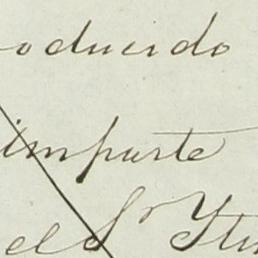 oducido
importe
el Sr Ytu